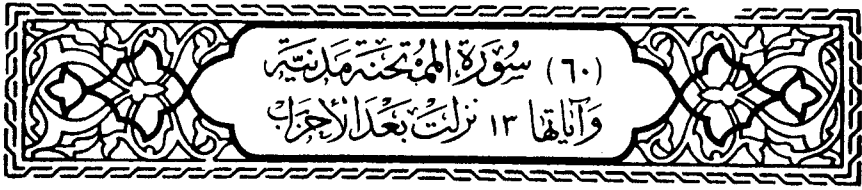 (٦٠) سُورَةُ الْمُمْتَحنَةِ مَدَنِيَّة
وَآيَاتُهَا ١٣ نَزَلَتْ بَعْدَ الأَحْزَابِ